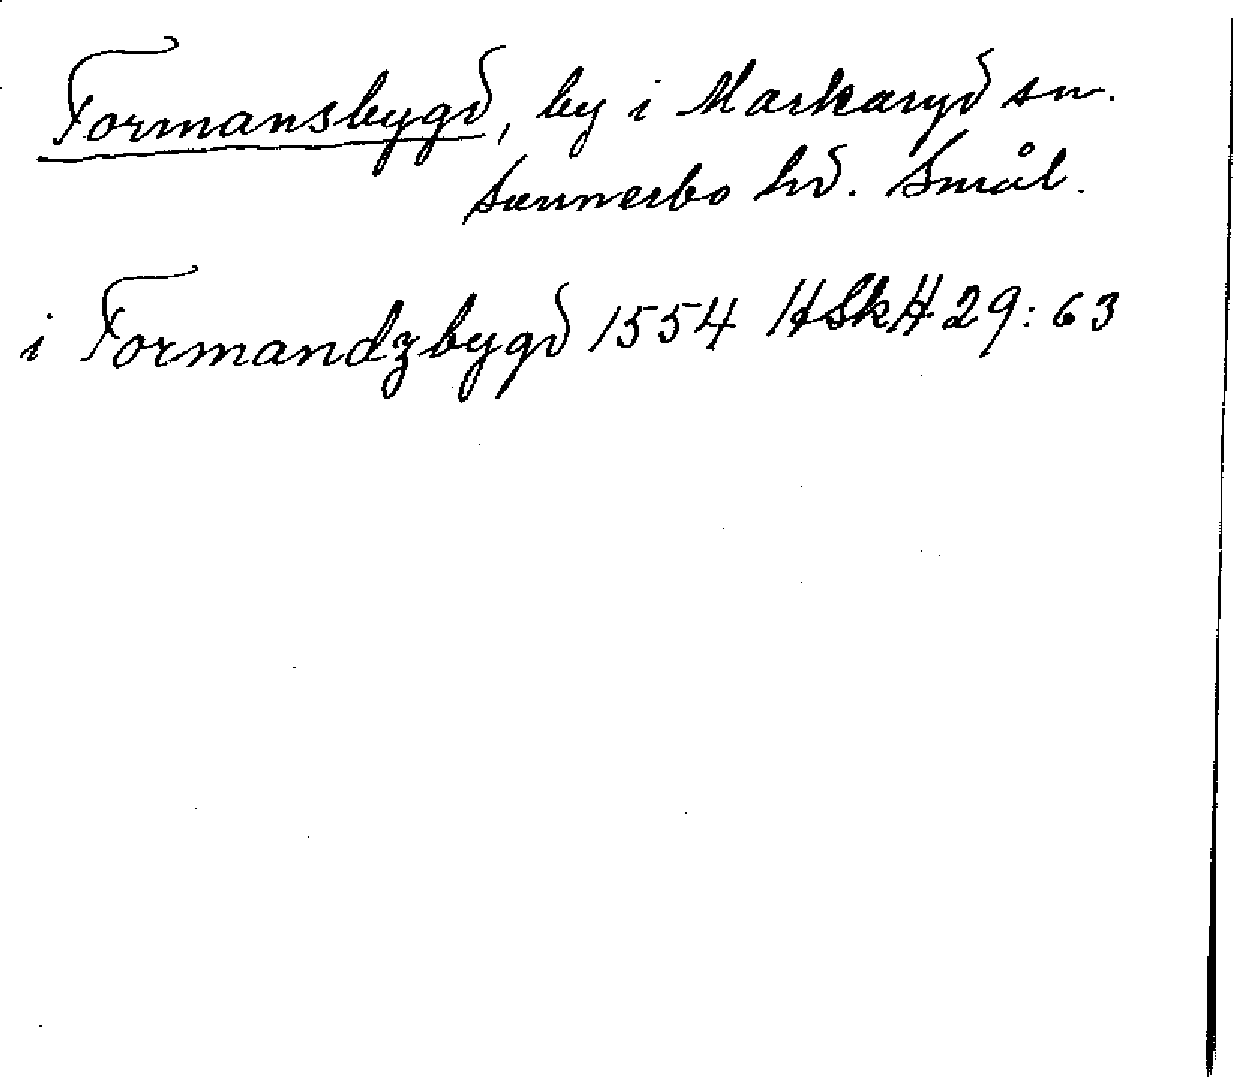 Formansbygd, by i Markaryd sn.
Sunnerbo hd. Smål.
i Formandzbygd 1554 HSkH 29:63